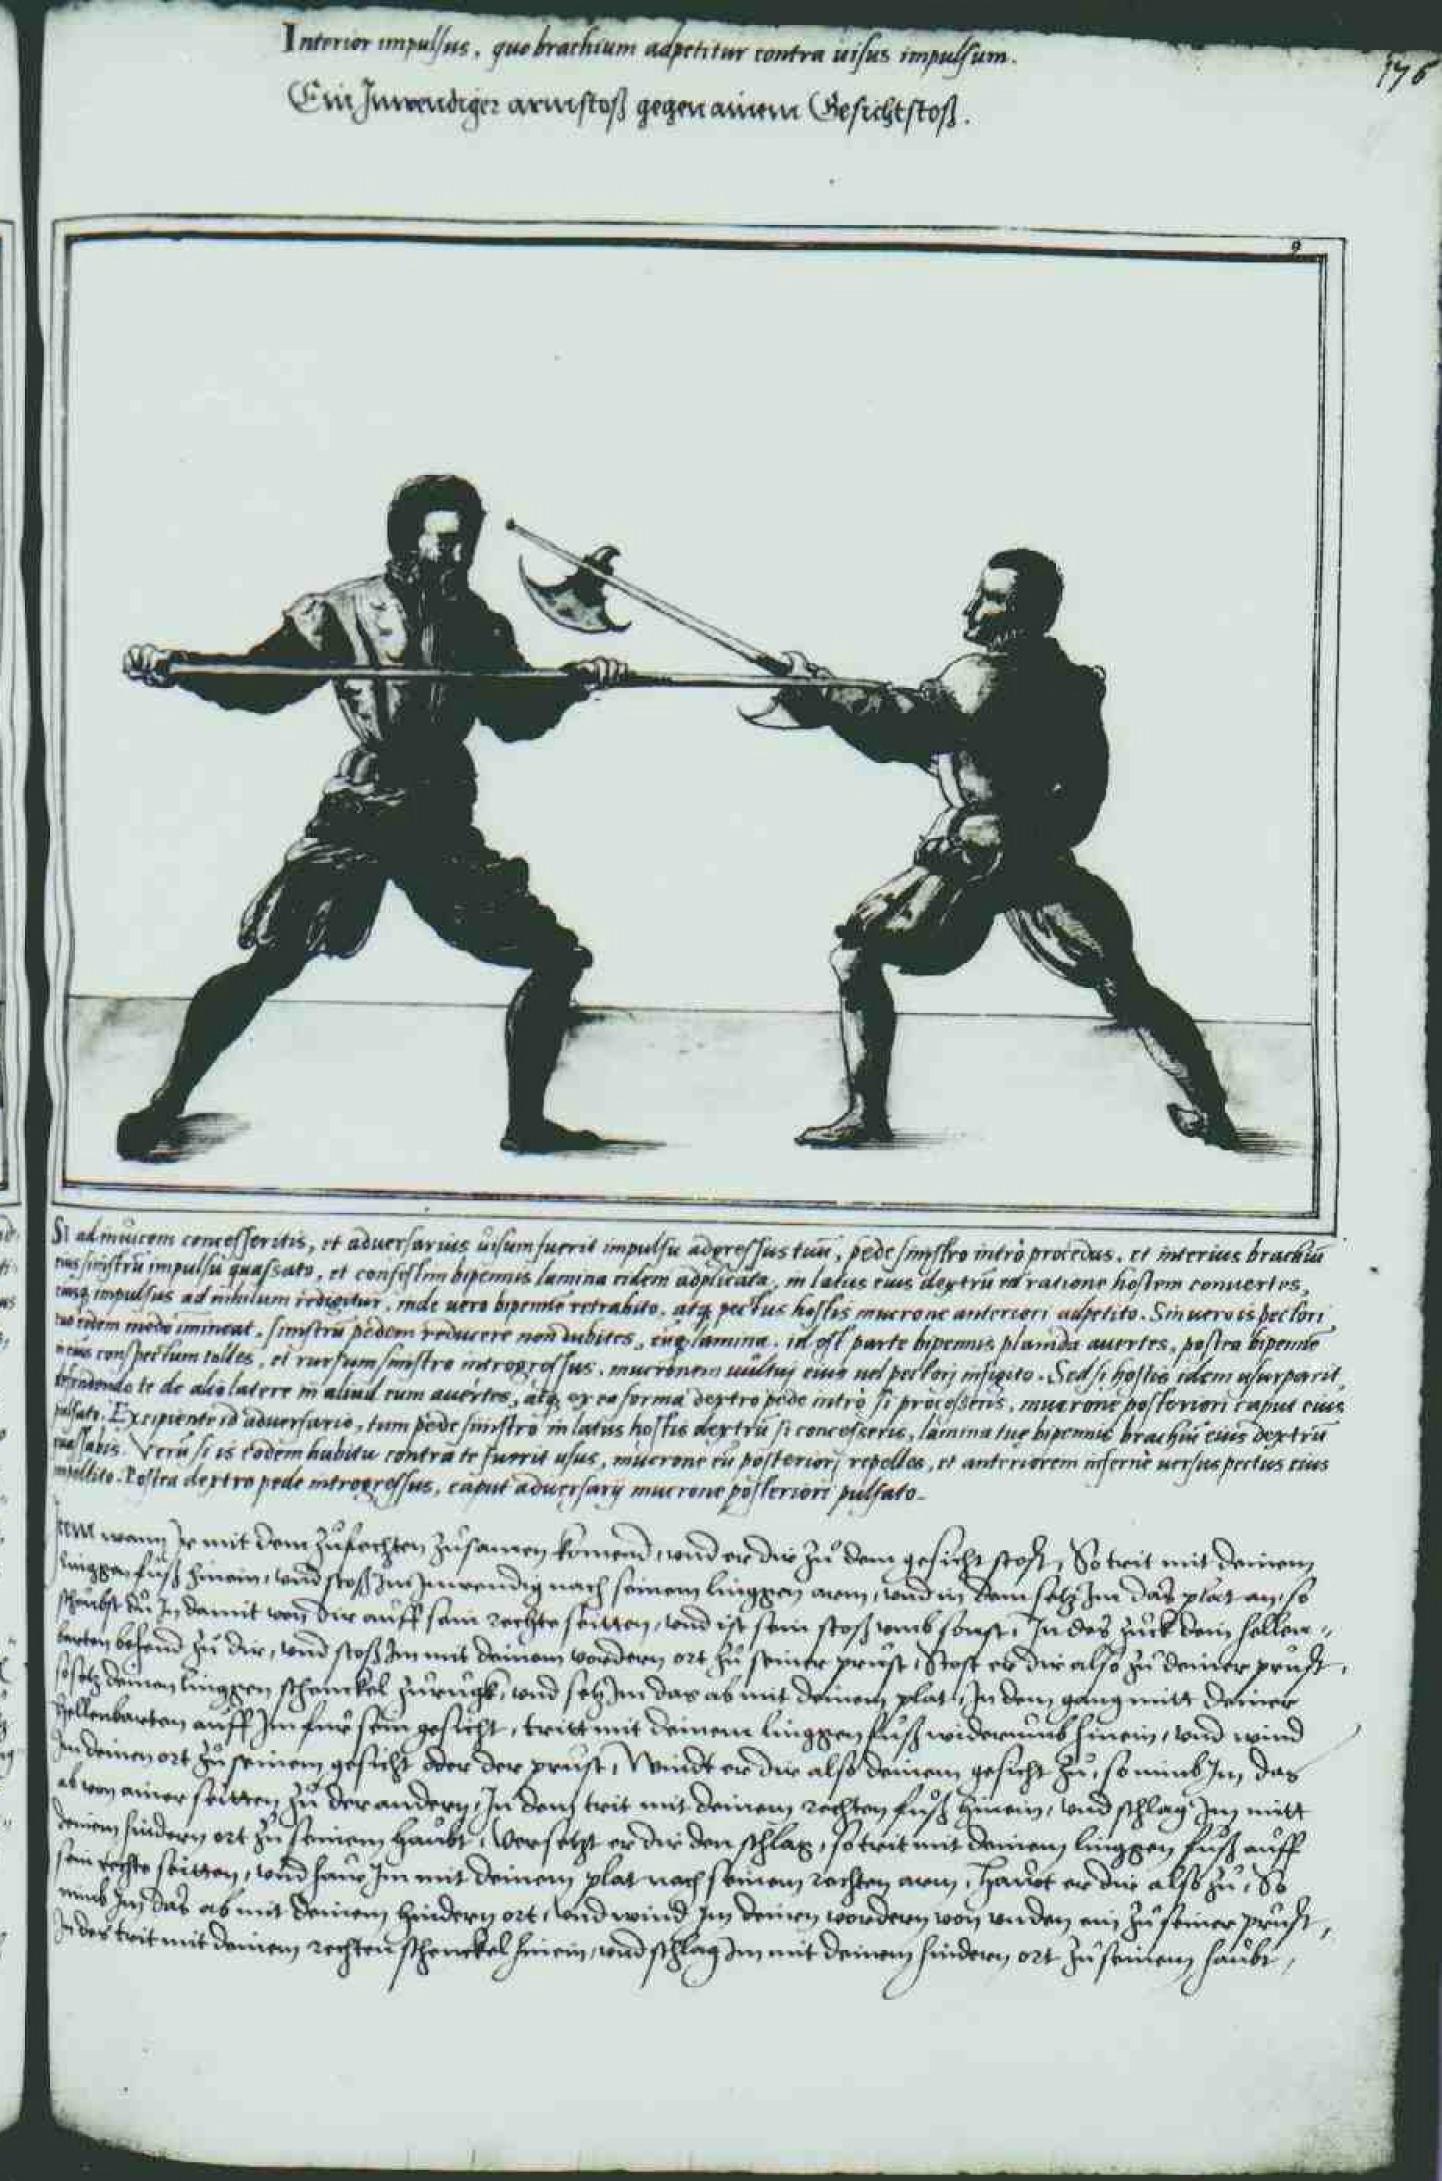 Interior impulsus, quo brachium adpetitur contra uisus impulsum.
176
Ein Inwendiger armstoß gegen ainem Gesichtstoß.
9
Si ad inuicem concesseritis, et aduersarius uisum fuerit impulsu adgressus tuũ, pede sinistro intrò procedas, et interius brachiũ
eius sinistrũ impulsu quassato, et confestim bipennis lamina eidem adplicata, in latus eius dextrũ ea ratione hostem conuertes,
eiusq, impulsus ad nihilum redigetur, inde uero bipennẽ retrahito, atq, pectus hostis mucrone anteriori adpetito. Sin uero is pectori
tuo eidem modo imineat, sinistrũ pedem reducere non dubites, eũq, lamina, id est parte bipennis planicla auertes, postea bipennẽ
in eius conspectum tolles, et rursum sinistro introgressus, mucronem uultui eius uel pectori infigito. Sed si hostis idem usurparit,
defendendo te de alio latere in aliud eum auertes, atq, ex ea forma dextro pede intrò si processeris, mucrone posteriori caput eius
pulsato. Excipiente id aduersario, tum pede sinistro in latus hostis dextrũ si concesseris, lamina tuę bipennis brachiũ eius dextrũ
quassabis. Verũ si is eodem habitu contra te fuerit usus, mucrone eũ posteriori repelles, et anteriorem infernè uersus pectus eius
impellito. Postea dextro pede introgressus, caput aduersarij mucrone posteriori pulsato.
Item wann Ir mit dem zůfechten zůsamen komend, und er dir zů dem gesicht stost, So trit mit deinem
linggen fůß hinein, und stoß Im Inwendig nach seinem linggen arm, und in dem setz Im das plat an, so
scheubst du In damit von dir auff sein rechte seitten, und ist sein stoß umb sonst, In des zuck dein hellen-
barten behend zů dir, und stoß Im mit deinem vordern ort zů seiner prust, Stost er dir also zů deiner prust,
so setz deinen linggen schenckel zůrugk, und setz Im das ab mit deinem plat, In dem gang mitt deiner
Hellenbarten auff Im fur sein gesicht, tritt mit deinem linggen fůß widerumb hinein, und wind
Im deinen ort zů seinem gesicht oder der prust, Windt er dir also deinem gesicht zů, so nimb Im das
ab von ainer seitten zů der andern, In dem trit mit deinem rechten fůß hinein, und schlag Im mitt
deinem hindern ort zů seinem haubt, Versetzt er dir den schlag, so trit mit deinem linggen fůß auff
sein rechte seitten, und haw Im mit deinem plat nach seinem rechten arm, Hawt er dir also zů, So
nimb Im das ab mit deinem hindern ort, und wind Im deinen vordern von unden ein zů seiner prust,
In des trit mit deinem rechten schenckel hinein, und schlag Im mit deinem hindern ort zů seinem haubt,